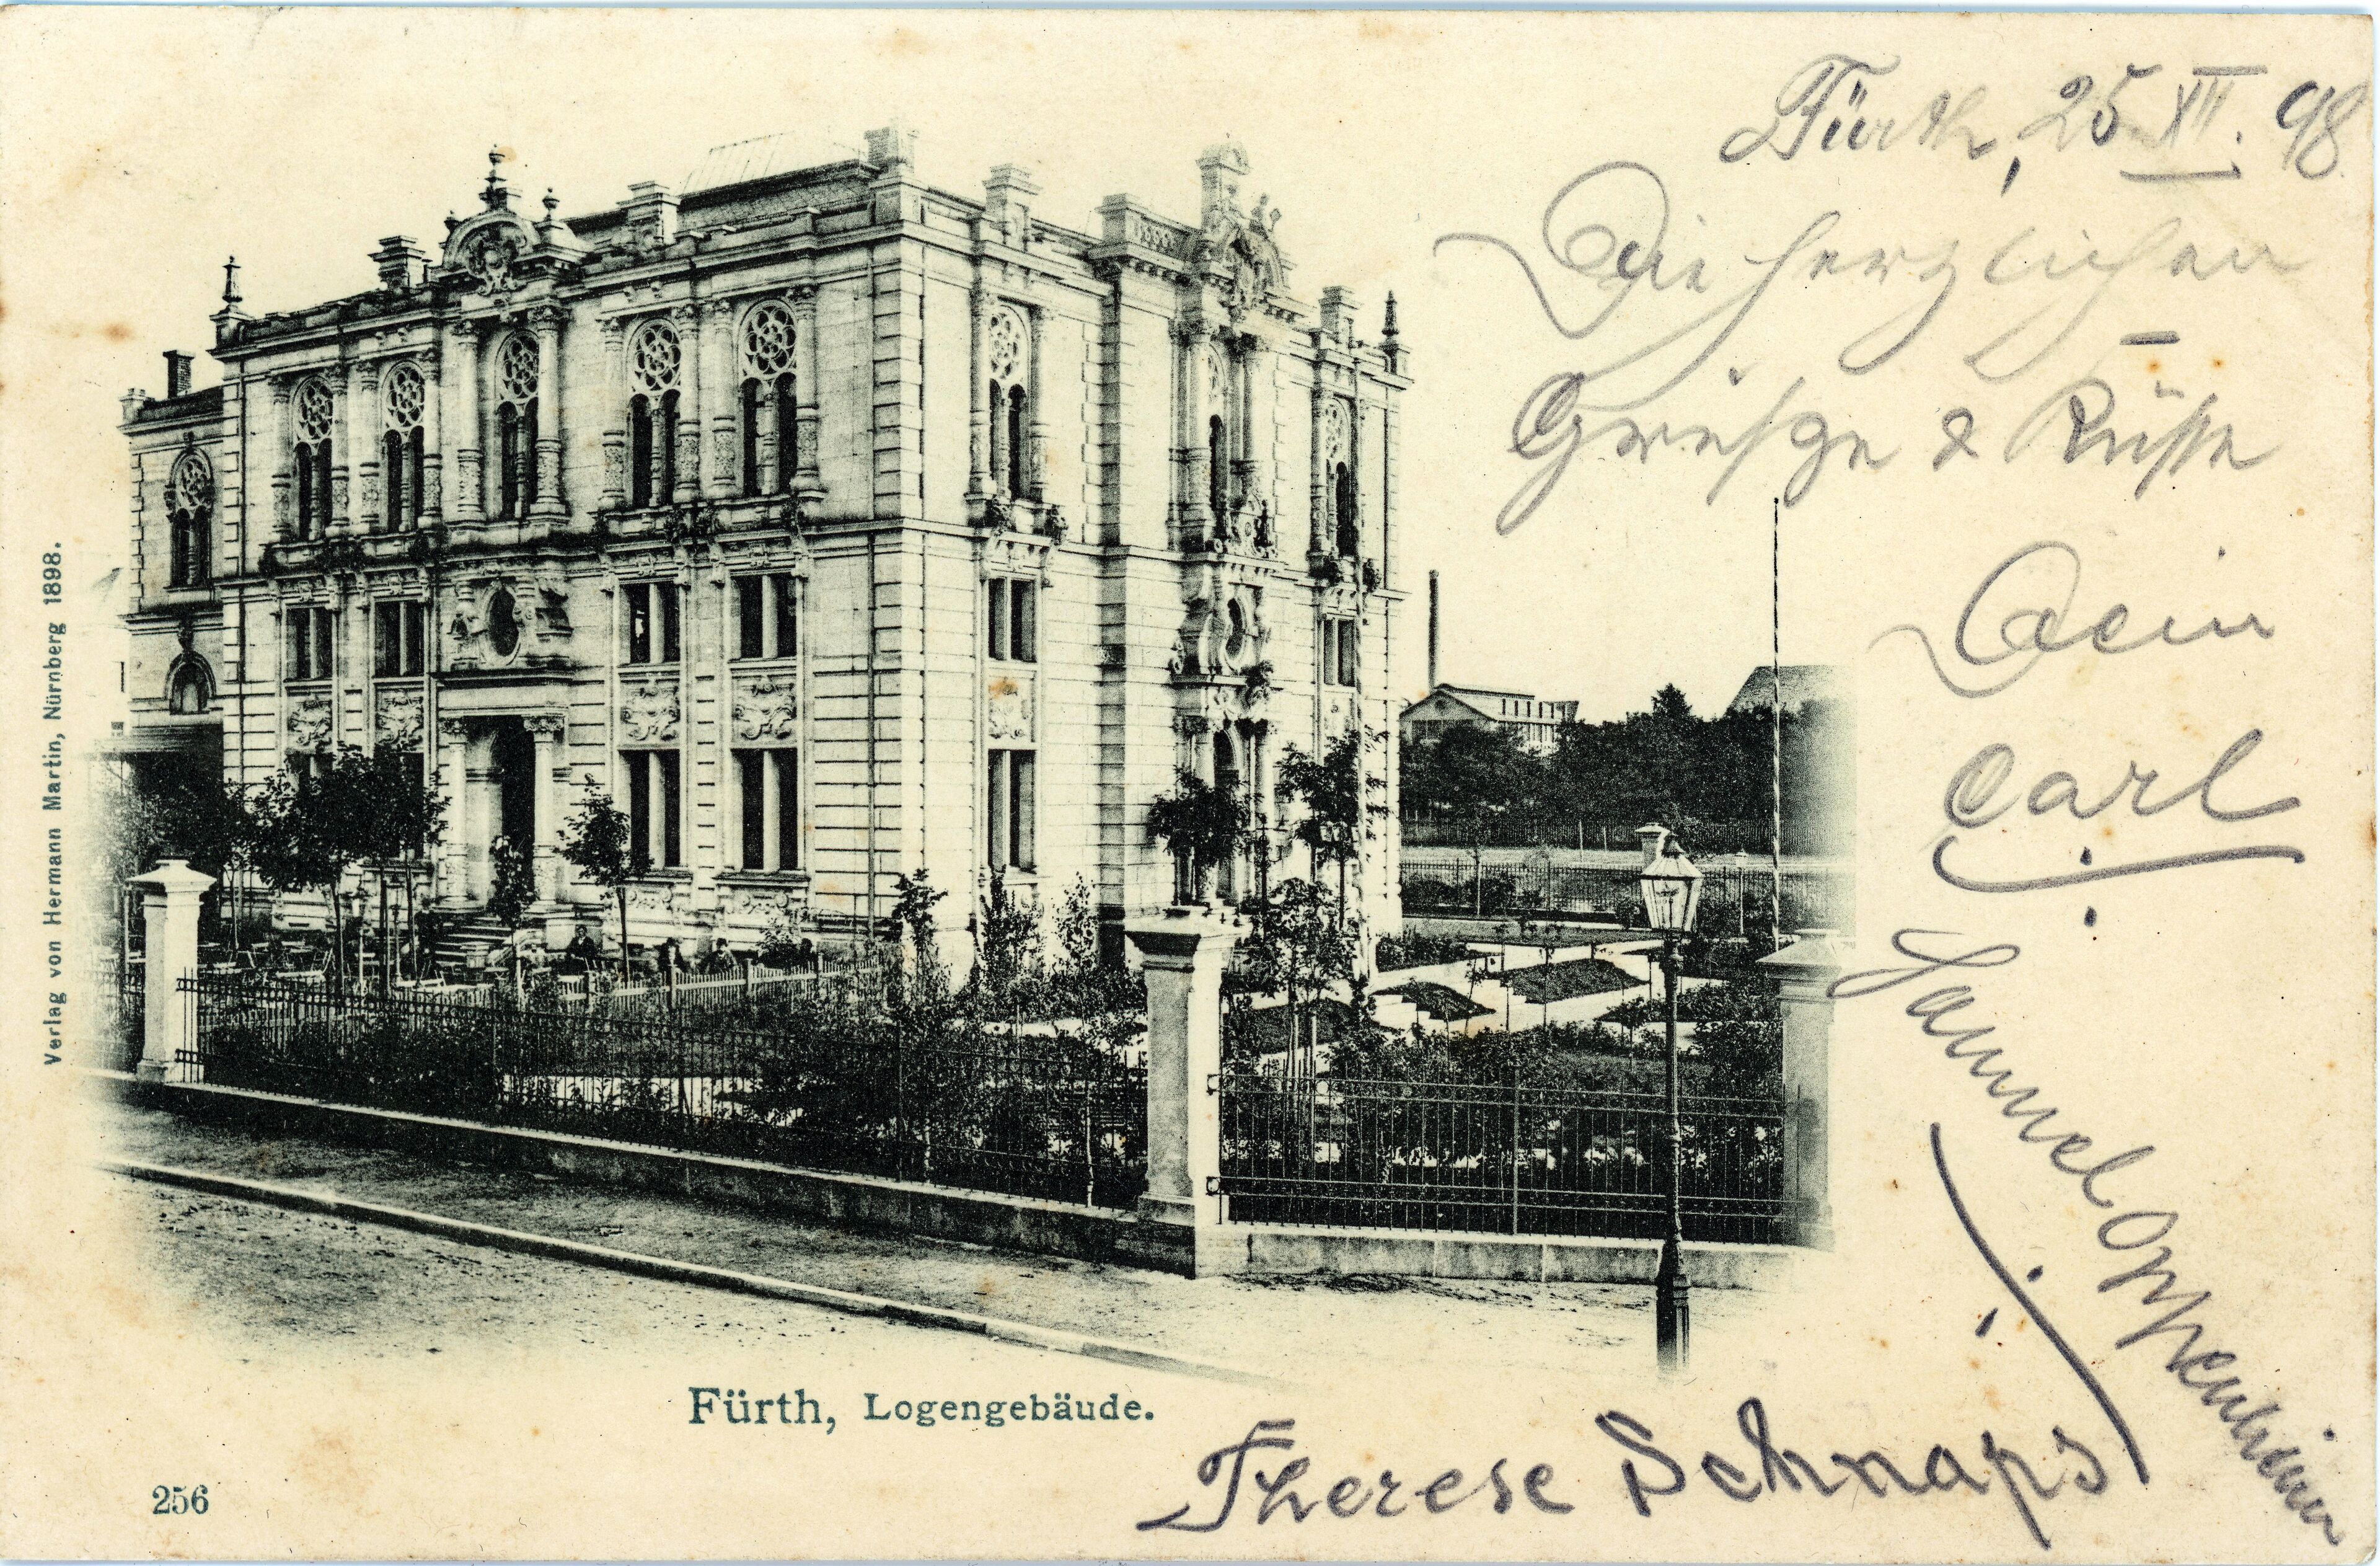 Fürth, 25. XII. 98.
Die herzlichsten
Grüße & Küsse
Dein
Carl
Samuel Oppenheim
Therese Schnaps
Fürth, Logengebäude.
256
Verlag von Hermann Martin, Nürnberg 1898.